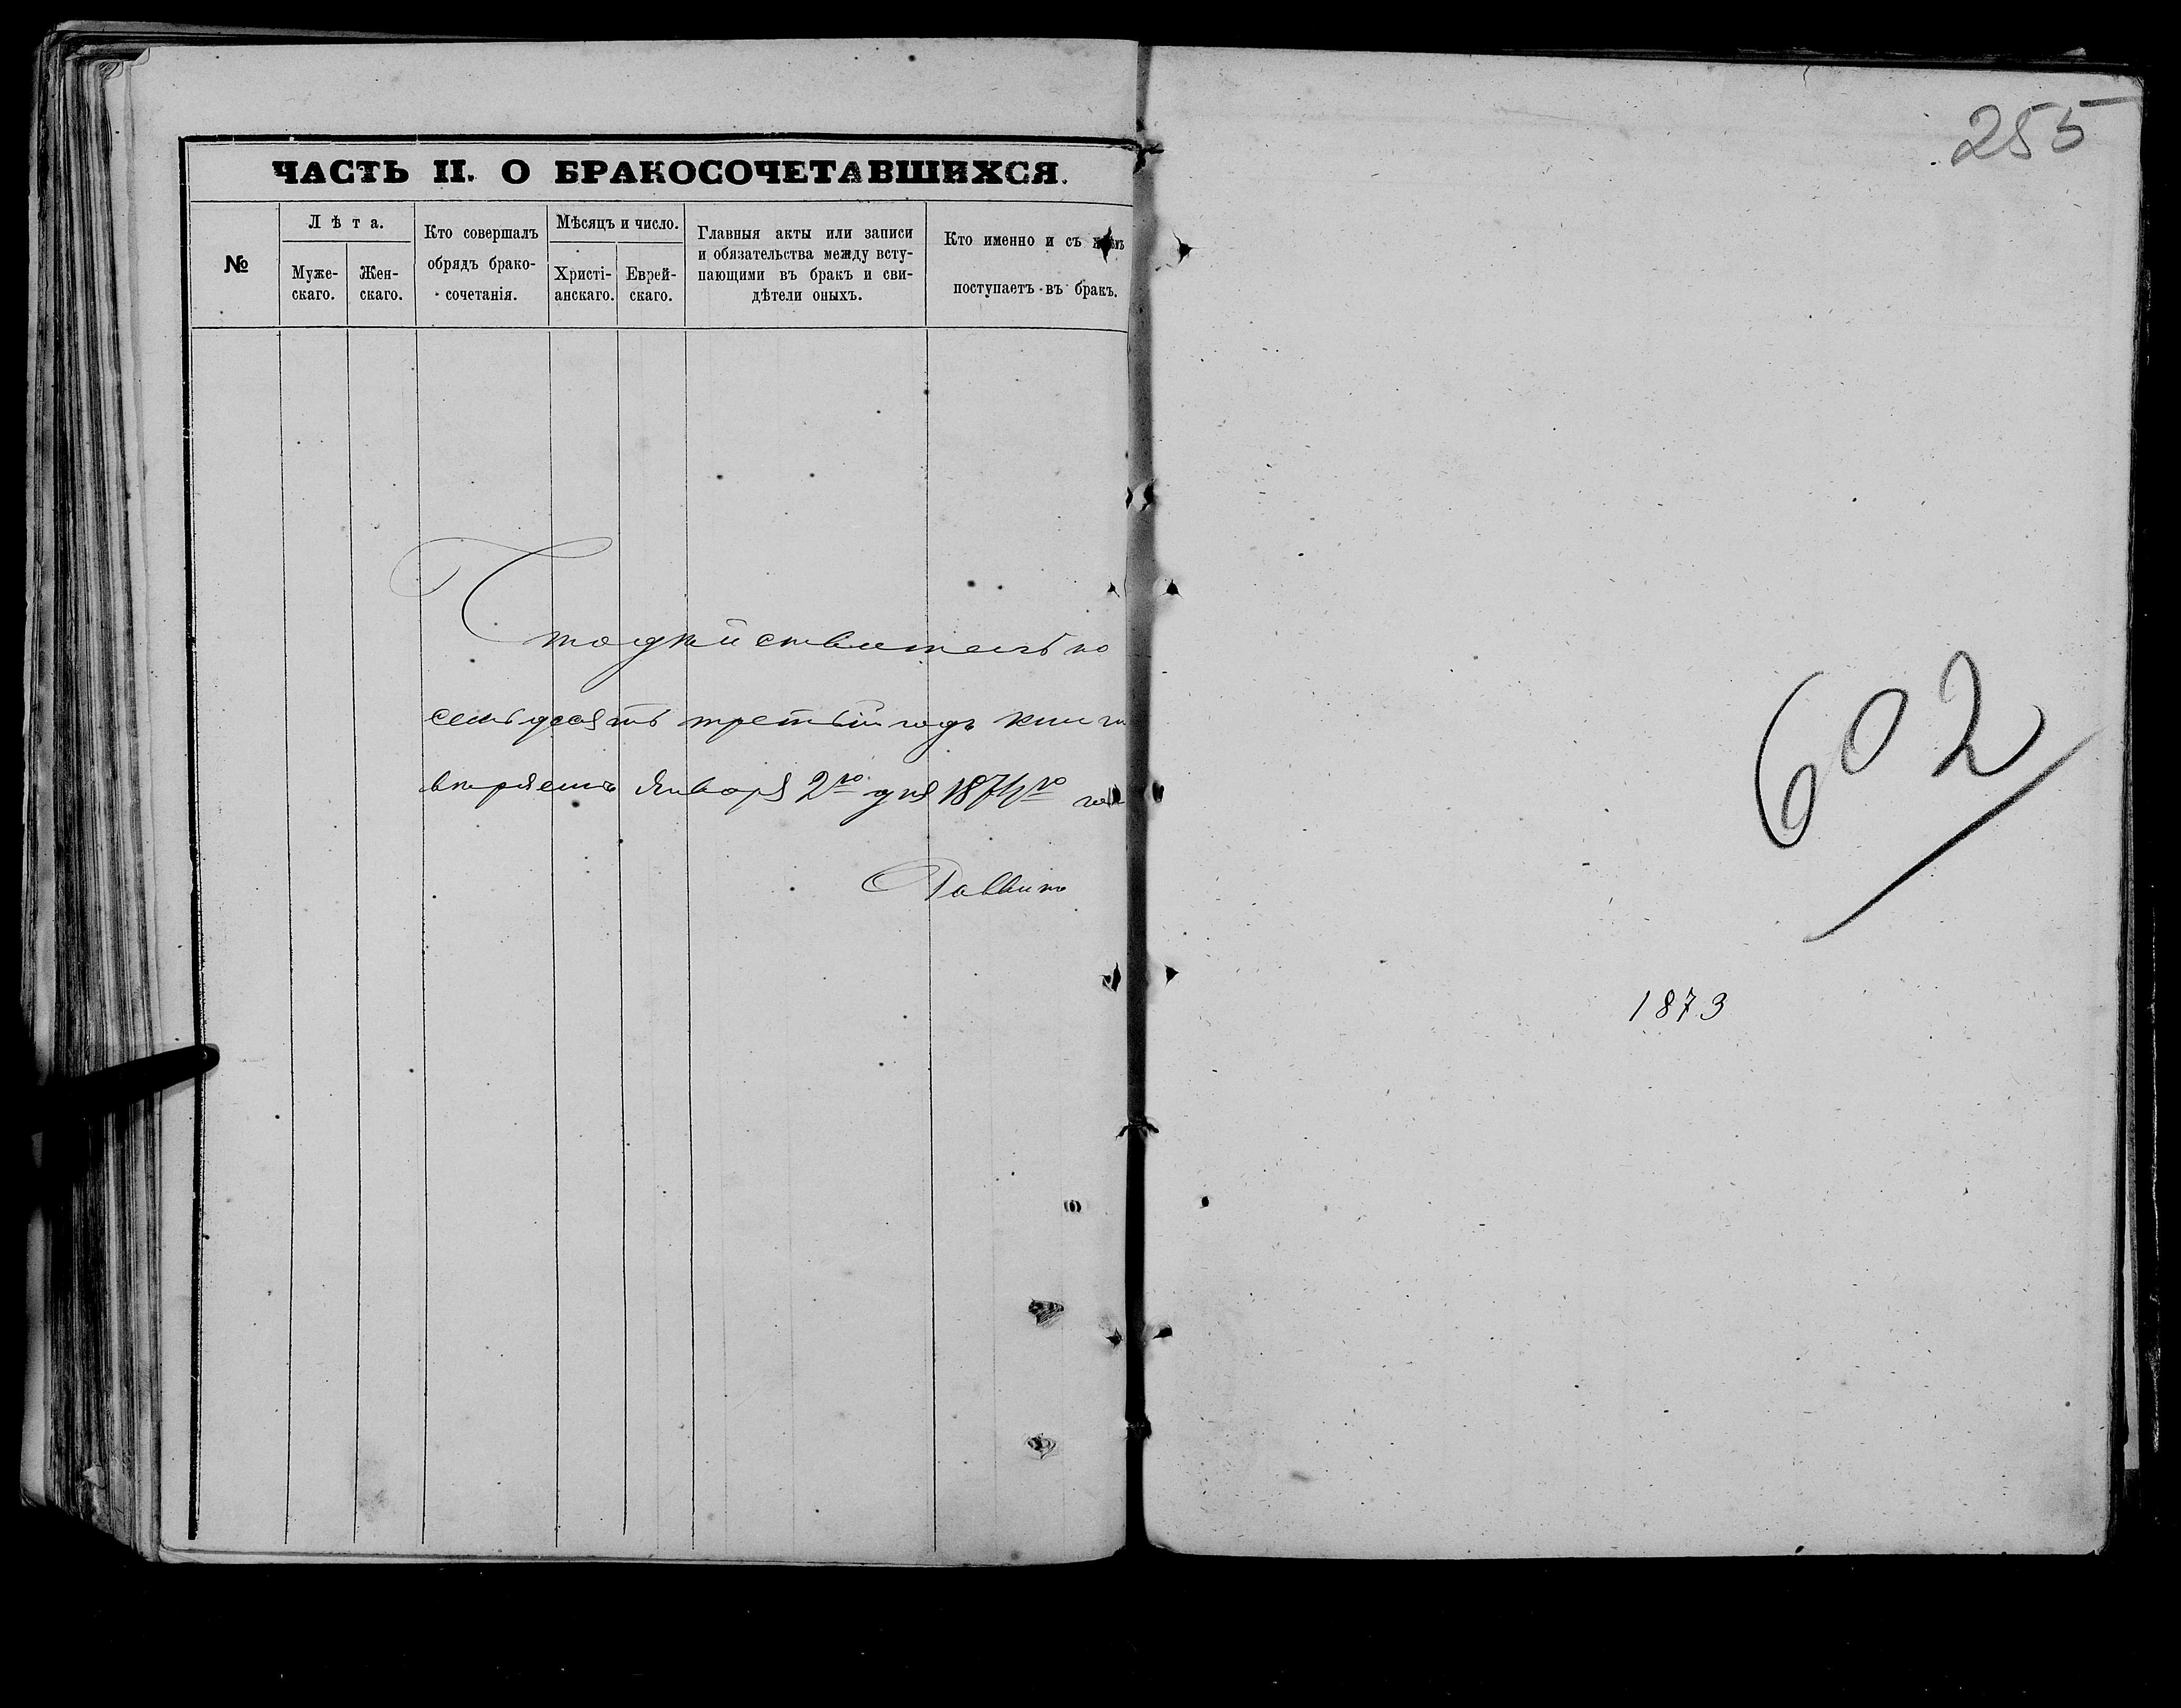 255
ЧАСТЬ II. О БРАКОСОЧЕТАВШИХСЯ.
№
Лѣта.
Муже-
скаго.
Жен-
скаго.
Кто совершалъ
обрядъ брако-
сочетанія.
Мѣсяцъ и число.
Христі-
анскаго.
Еврей-
скаго.
Главныя акты или записи
и обязательства между всту-
пающими въ бракъ и сви-
дѣтели оныхъ.
Кто именно и съ кѣмъ
поступаетъ въ бракъ.
Что дѣйствительно
семьдесятъ третьій годъ книги
Января 2го дня 1874го
Раввинъ
602
1873